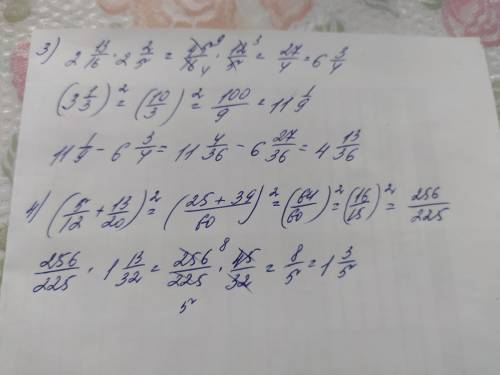 3) 2 13/16 · 2 2/5 = 45⁹/16₄ · 12³/5 = 27/4 = 6 3/4
(3 1/3)² = (10/3)² = 100/9 = 11 1/9
11 1/9 - 6 3/4 = 11 4/36 - 6 27/36 = 4 13/36
4) (5/12 + 13/20)² = (25 + 39/60)² = (64/60)² = (16/15)² = 256/225
256/225 · 1 13/32 = 256⁸/225₅ · 45/32 = 8/5 = 1 3/5